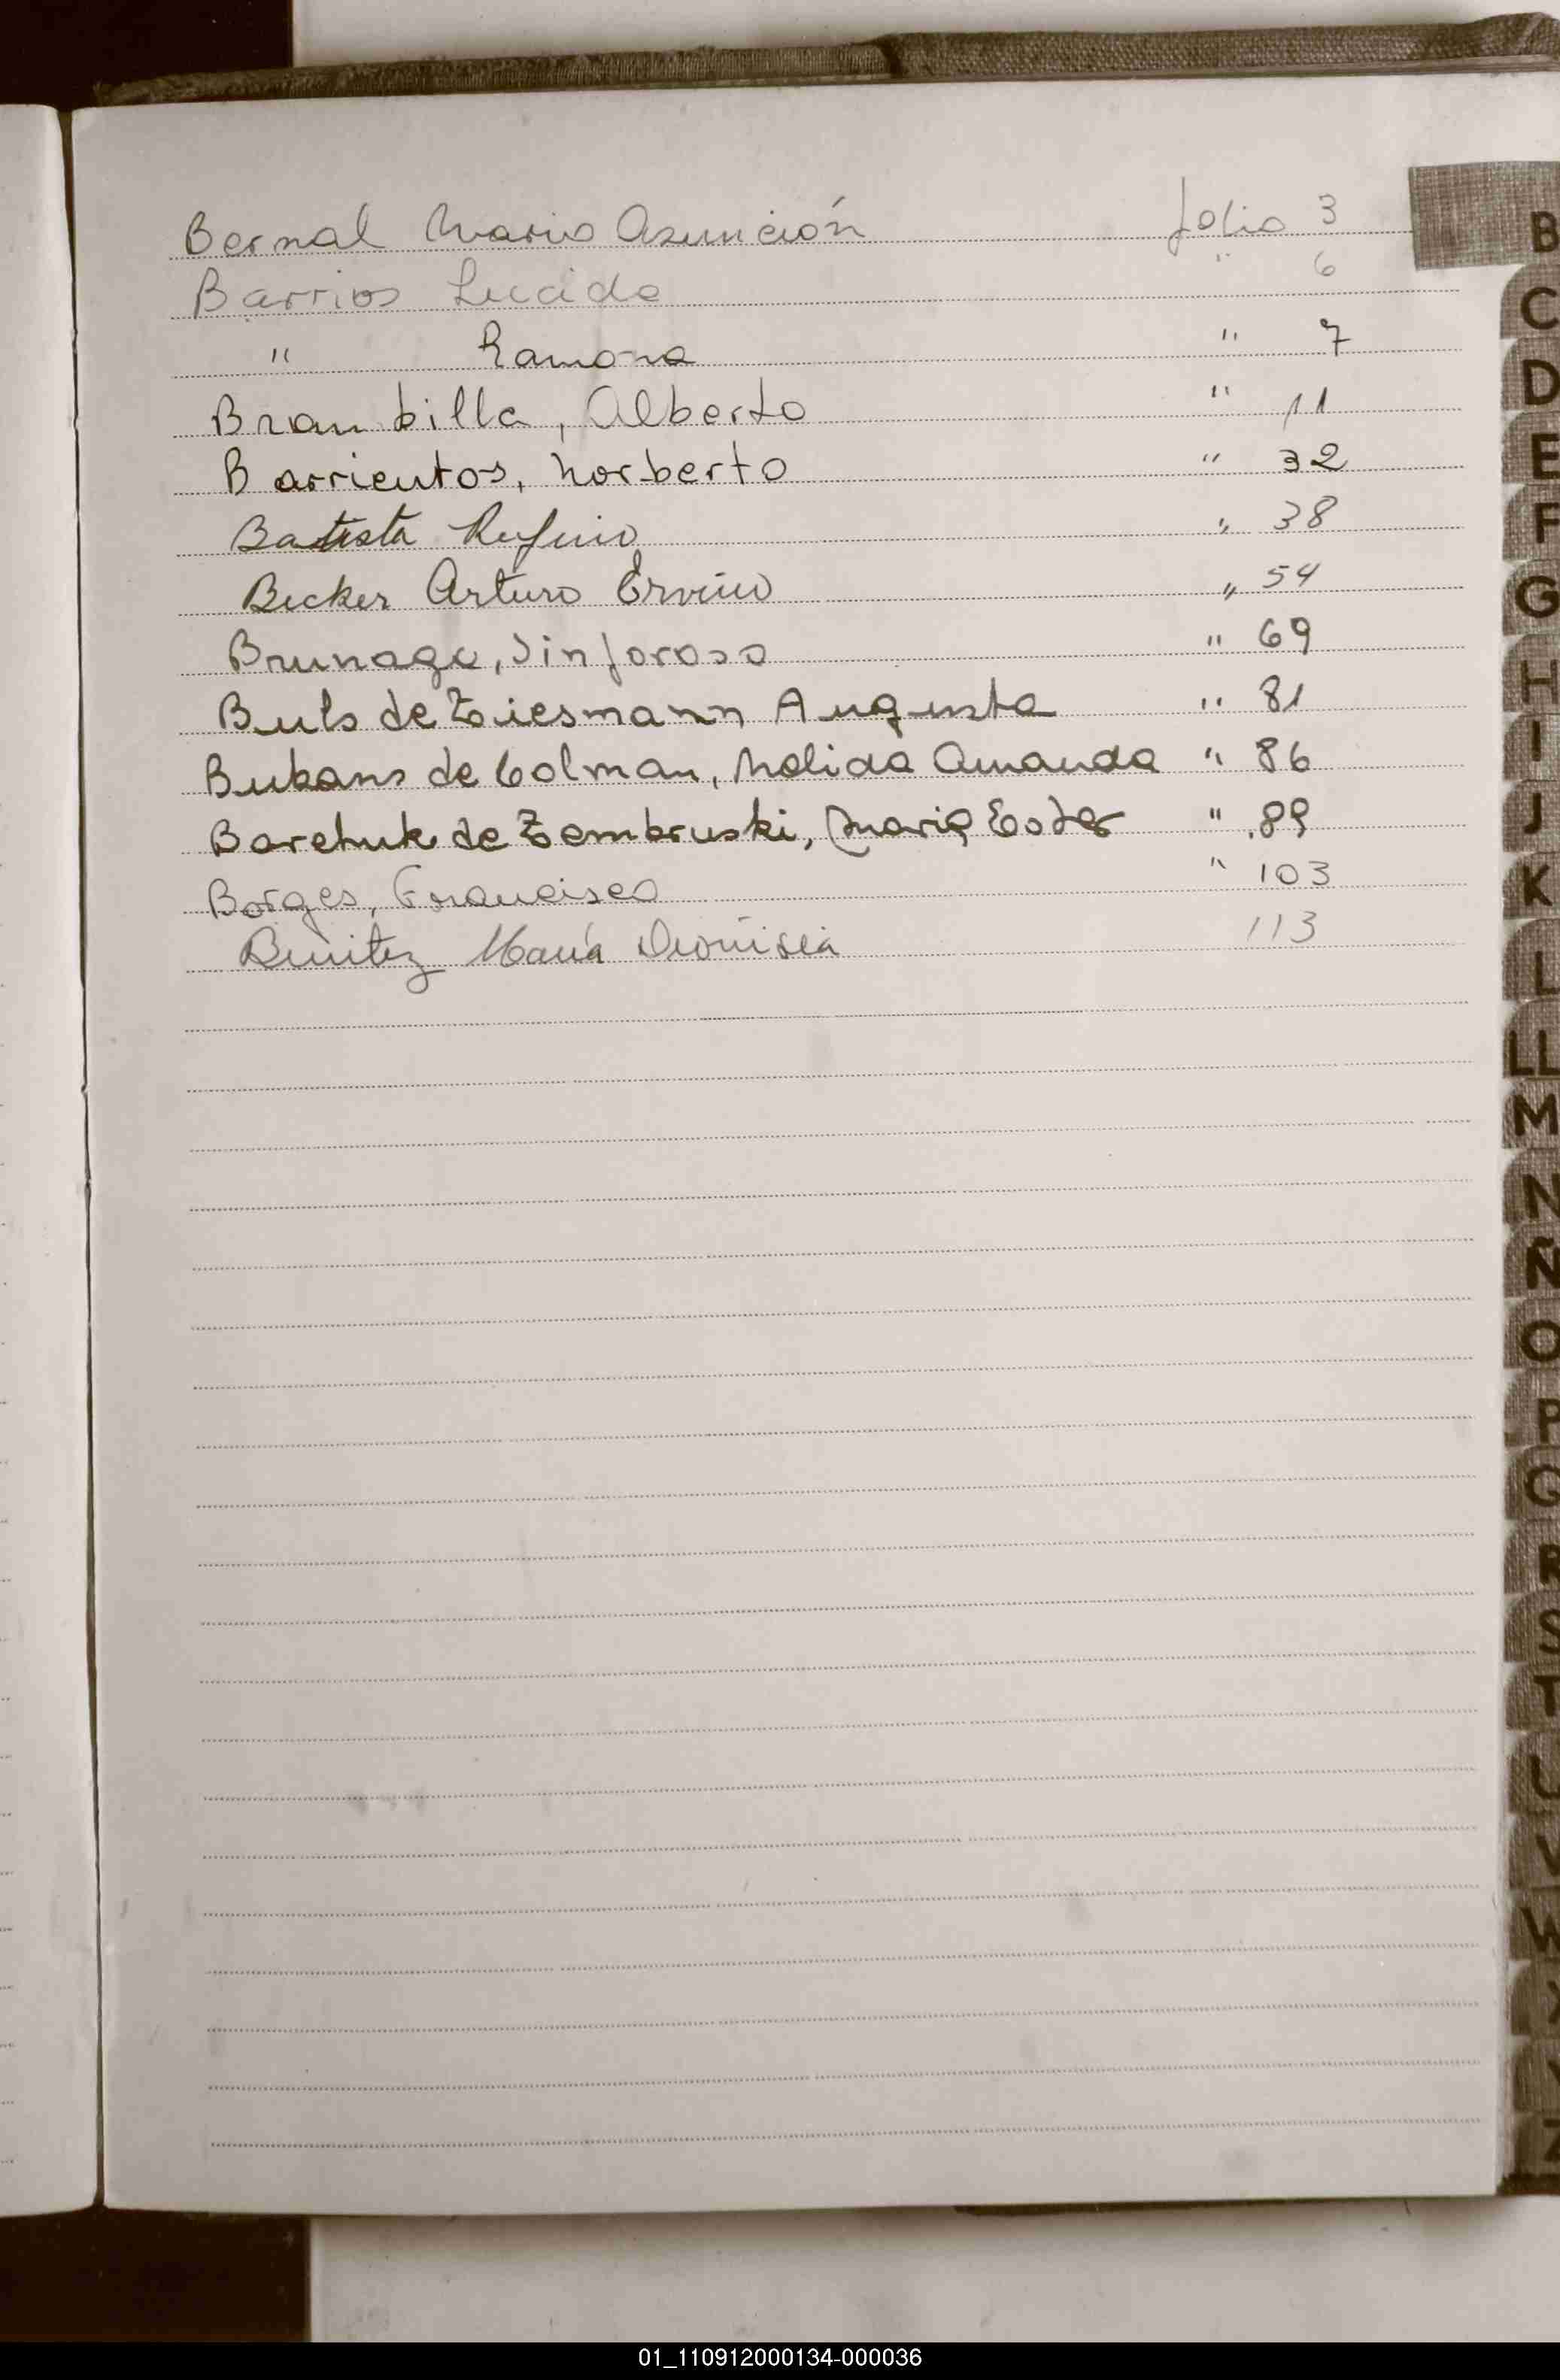 Bernal Mario Asunción folio 3
Barrios Lucida " 6
" Ramona " 7
Brambilla, Alberto " 11
Barrientos, Norberto " 32
Batista Rufino " 38
Becker Arturo Ervino " 54
Brunaga, Sinforosa " 69
Buls de Ziesmann Augusta " 81
Bukans de Colman, Nelida Amanda " 86
Barchuk de Zembruski, Maria Ester " 89
Borges, Francisco " 103
Benitez María Dionisia 113
B
C
D
E
F
G
H
I
J
K
L
LL
M
N
Ñ
O
P
Q
R
S
T
U
V
W
X
Y
Z
01_110912000134-000036